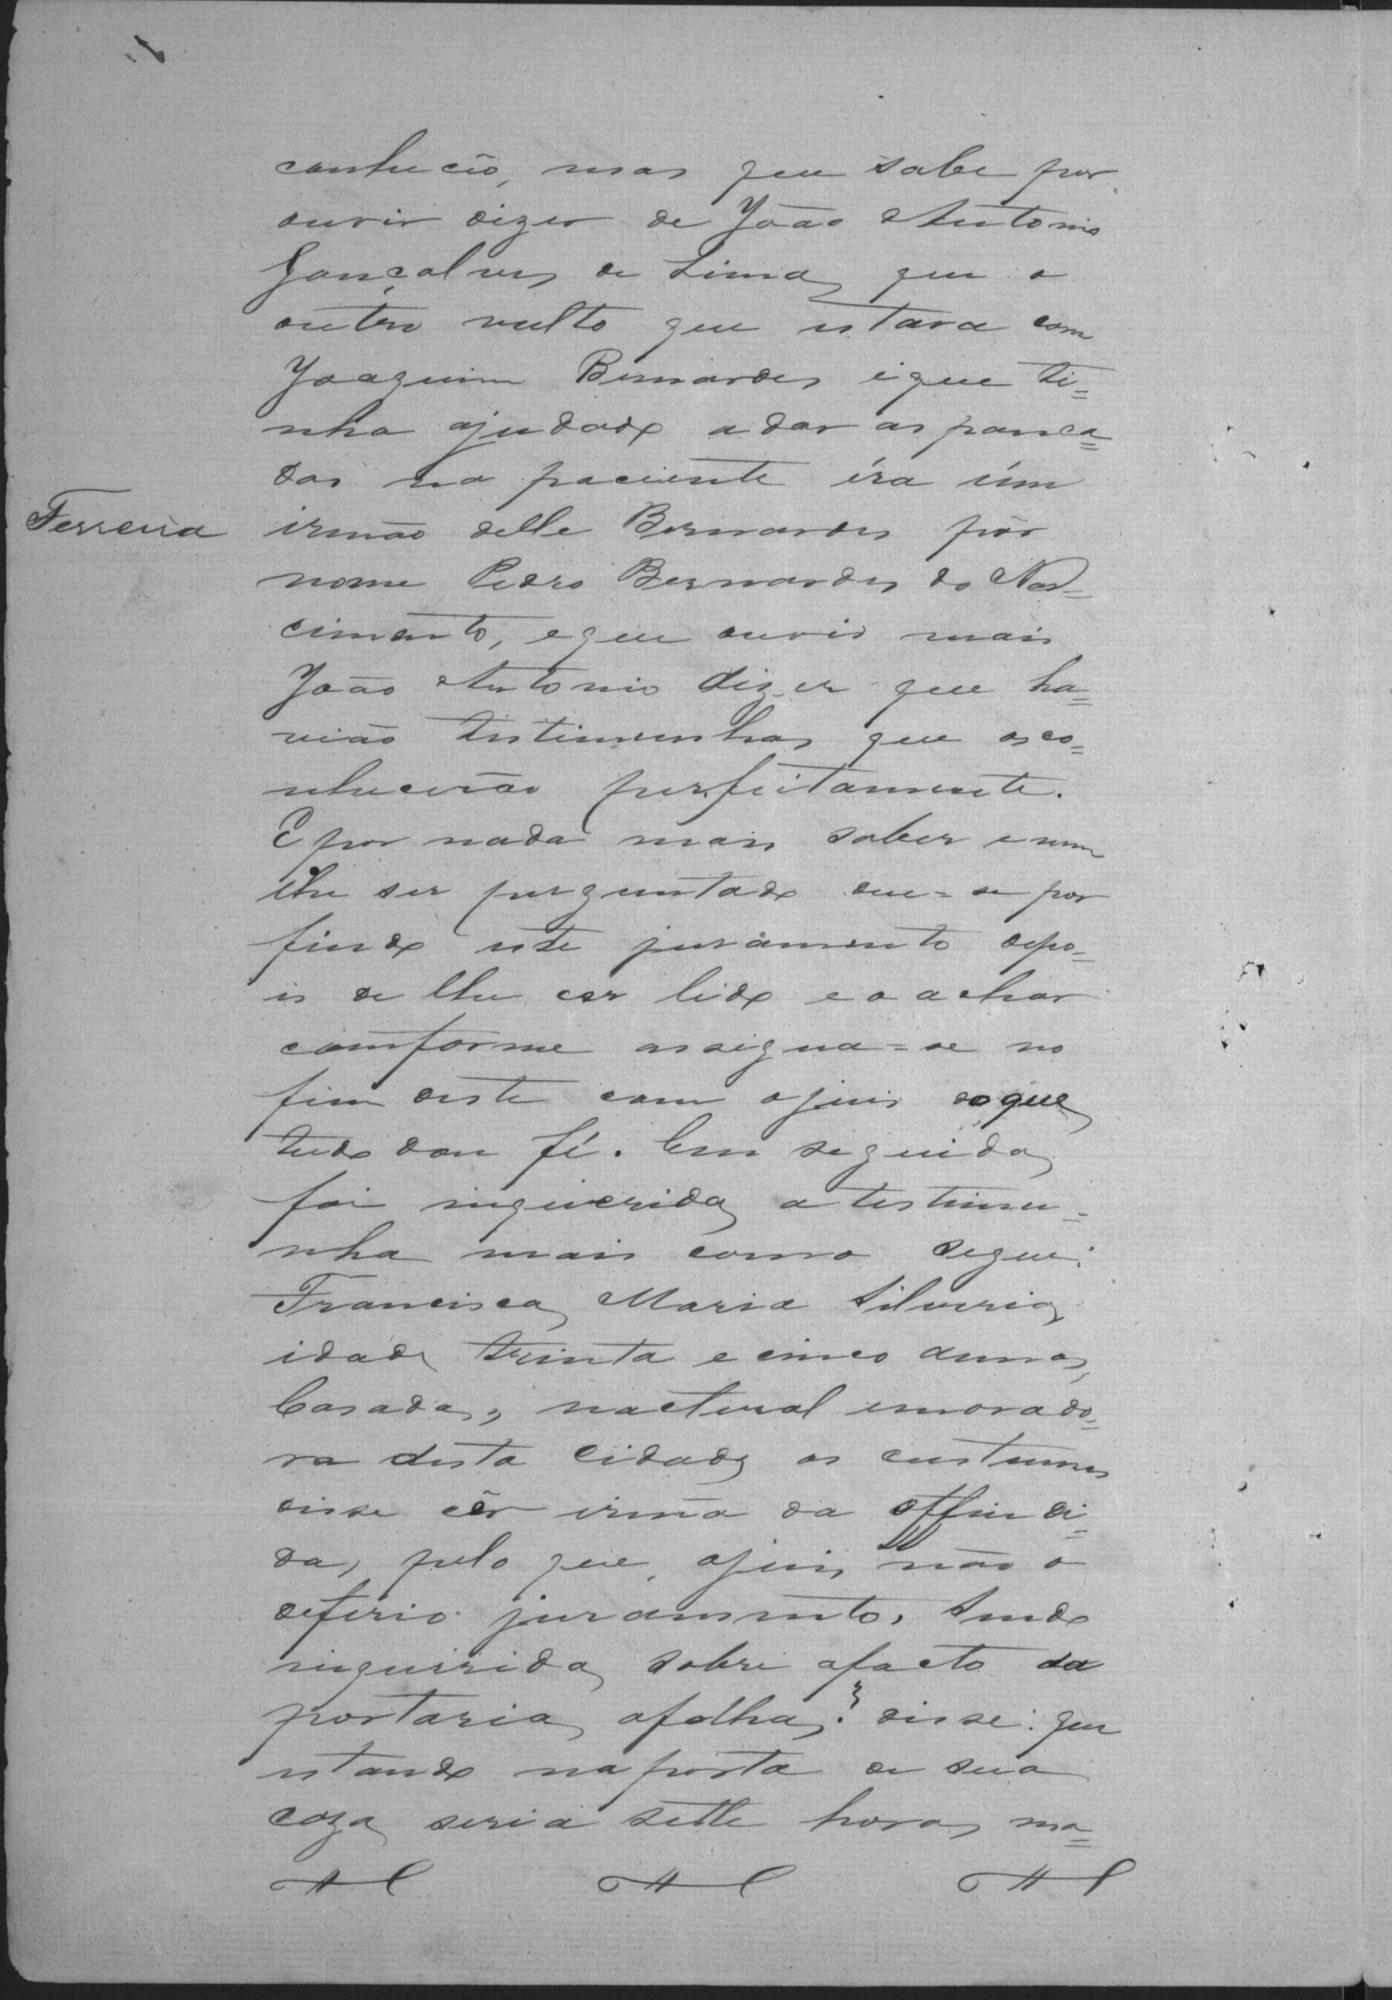 conheceo, mas que sabe por
ouvir dizer de João Antonio
Gonçalves de Lima, que o
outro vulto que estava com
Joaquim Bernardes e que ti=
nha ajudado a dar as panca=
das na paciente éra úm
Ferreira
irmão delle Bernardes pôr
nome Pedro Bernardes do Nas=
cimento, e que ouvio mais
João Antonio dizer que ha=
vião testimunhas que os co=
nhecerão perfeitamente.
E por nada mais saber e nem
lhe ser perguntado deu=se por
findo este juramento depo=
is de lhe cer lido e o achar
comforme assigna=se no
fim deste com o juis do que
tudo dou fé. Em seguida
foi inquerida a testimu=
nha mais como segue:
Francisca Maria Silveria
idade trinta e cinco annos,
Casada, nactural e morado=
ra desta Cidade os custumes
disse cêr irmã da offendi=
da, pelo que, o juis não o
deferio juramento. Sendo
inquirida sobre o facto da
portaria a folha? disse: que
estando na porta de sua
caza seria sette horas ma=